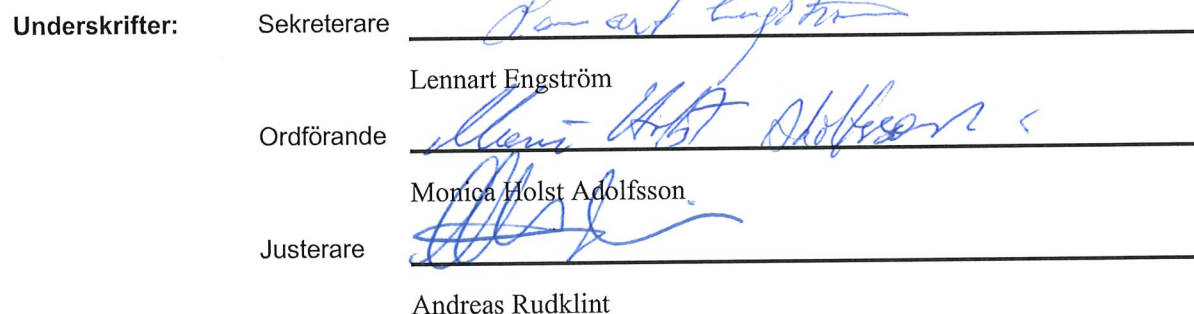 Underskrifter: Sekreterare Lennart Engström
Lennart Engström
Ordförande Monica Holst Adolfsson
Monica Holst Adolfsson
Justerare
Andreas Rudklint